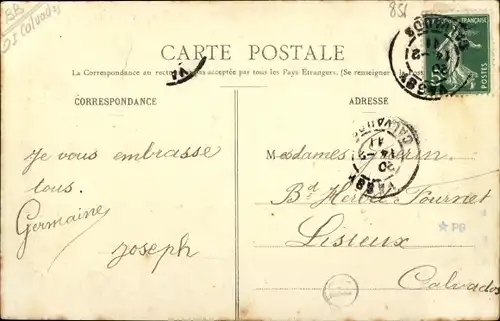 BB
DI Calvados
851
CARTE POSTALE
La Correspondance au recto pas acceptée par tous les Pays Étrangers. (Se renseigner Post
CORRESPONDANCE
ADRESSE
Je vous embrasse
tous.
Germaine
Joseph
Mesdames
Bd Herbet Fournet
Lisieux
Calvados
CALVADOS
★PB